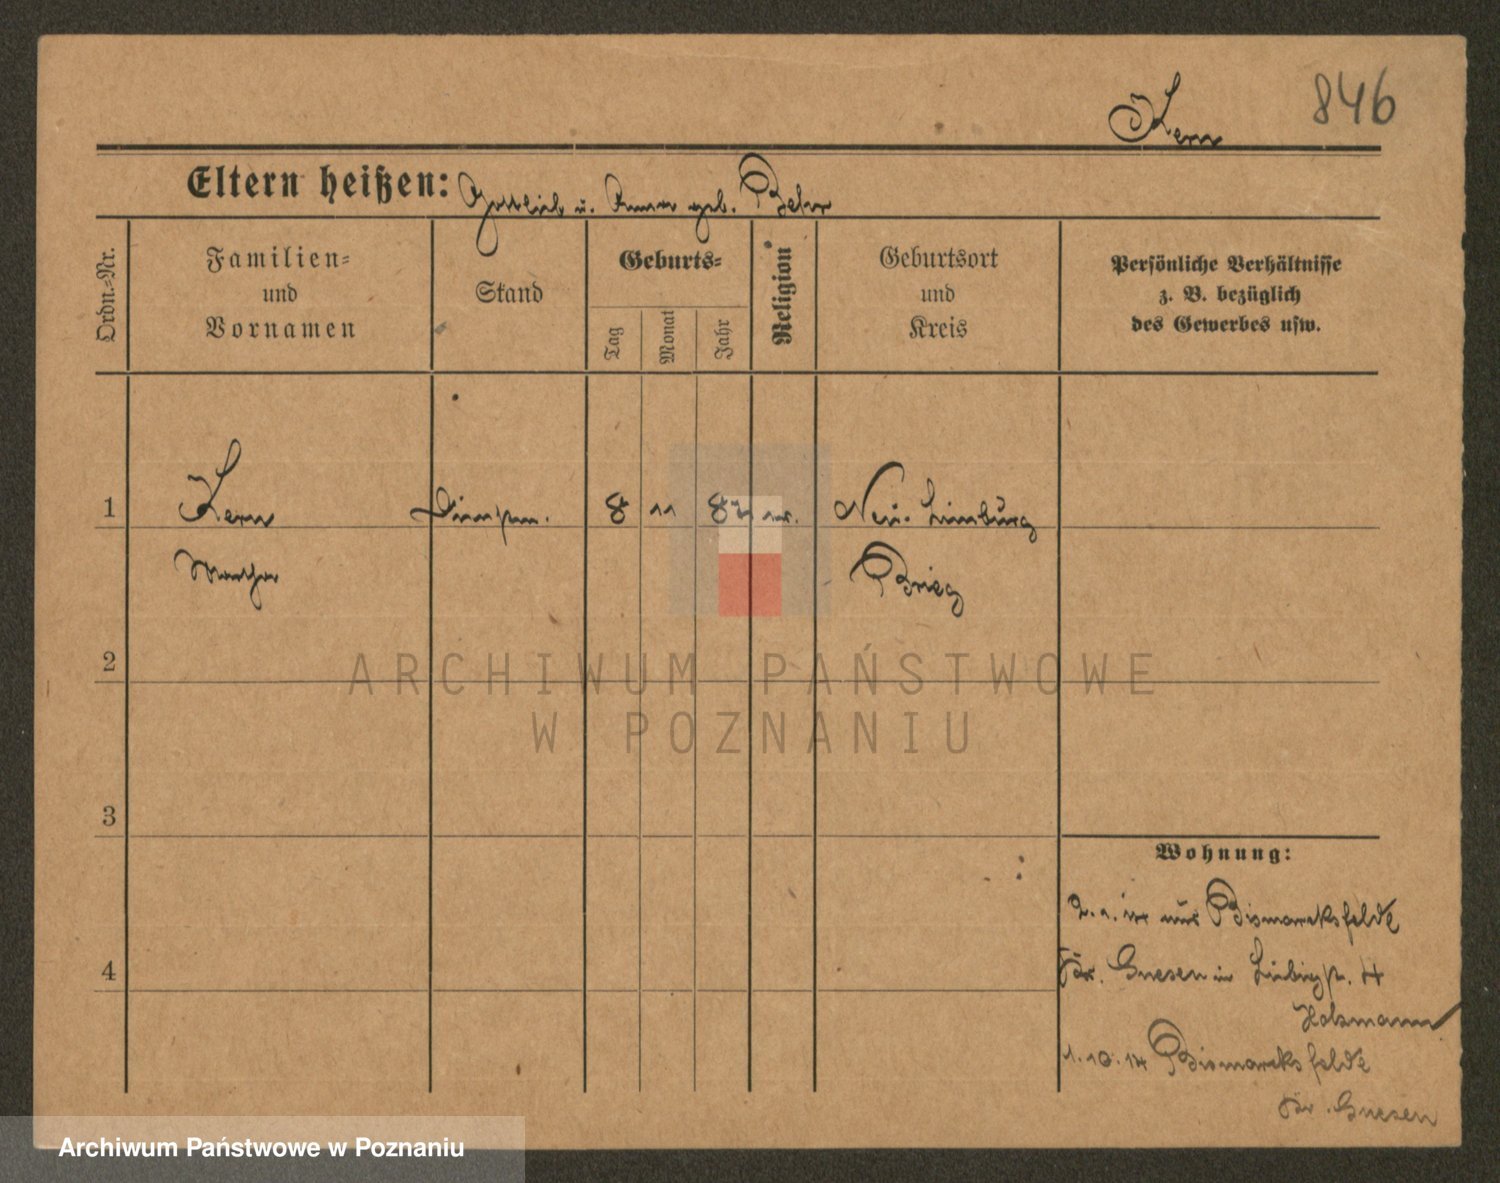 846
Kern
Eltern heißen: Gottlieb u. Anna geb. Behr
Ordn.=Nr.
Familien=
und
Vornamen
Stand
Geburts=
Tag
Monat
Jahr
Religion
Geburtsort
und
Kreis
Persönliche Verhältnisse
z. B. bezüglich
des Gewerbes usw.
1
Kern 8 11 Neu. Limburg
Martha Brieg
2
3
4
Wohnung:
aus Bismarcksfelde
Kr. Gnesen in 4
Holzmann
1.10.14 Bismarcksfelde
Kr. Gnesen
ARCHIWUM PAŃSTWOWE
W POZNANIU
Archiwum Państwowe w Poznaniu